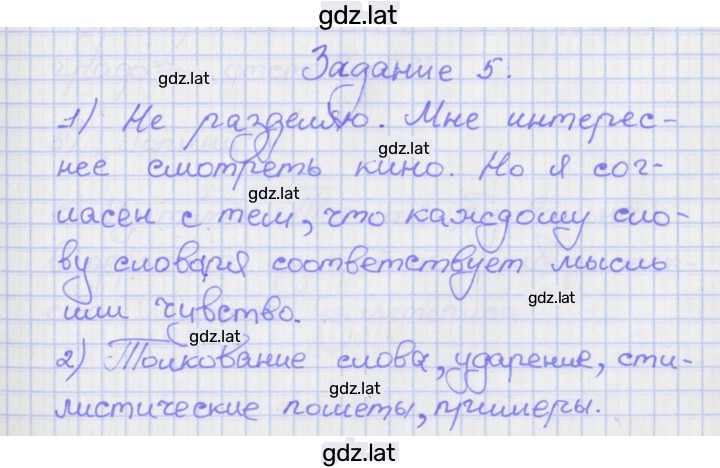 gdz.lat
Задание 5.
gdz.lat
1) Не разделяю. Мне интерес-
gdz.lat
нее смотреть кино. Но я сог-
gdz.lat
ласен с тем, что каждому сло-
ву словаря соответствует мысль
gdz.lat
или чувство.
gdz.lat
2) Толкование слова, ударение, сти-
gdz.lat
листические пометы, примеры.
gdz.lat